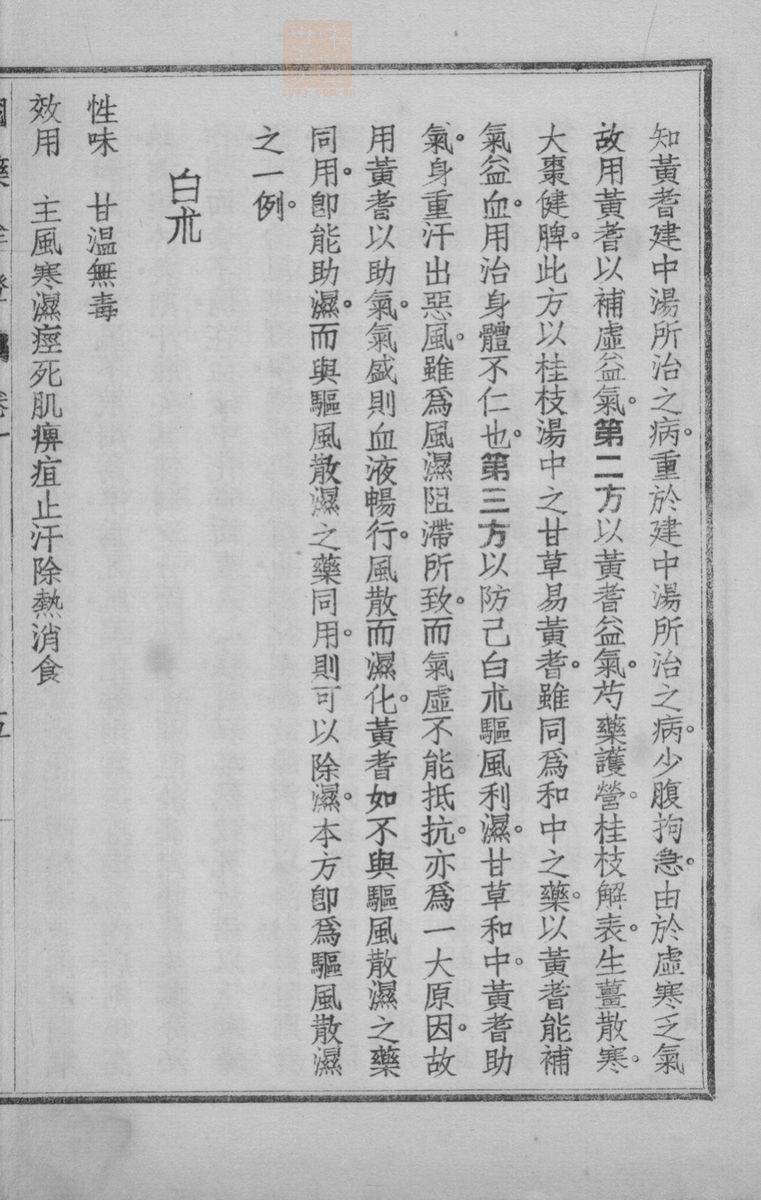 知黃耆建中湯所治之病。重於建中湯所治之病。少腹拘急。由於虛寒乏氣
故用黃耆以補虛益氣。第二方以黃耆益氣。芍藥護營。桂枝解表。生薑散寒。
大棗健脾。此方以桂枝湯中之甘草易黃耆。雖同爲和中之藥。以黃耆能補
氣益血。用治身體不仁也。第三方以防己白朮驅風利濕。甘草和中。黃耆助
氣。身重汗出惡風。雖爲風濕阻滯所致。而氣虛不能抵抗。亦爲一大原因。故
用黃耆以助氣。氣盛則血液暢行。風散而濕化。黃耆如不與驅風散濕之藥
同用。卽能助濕。而與驅風散濕之藥同用。則可以除濕。本方卽爲驅風散濕
之一例。
白朮
性味　甘溫無毒
效用　主風寒濕痙死肌痹疽止汗除熱消食